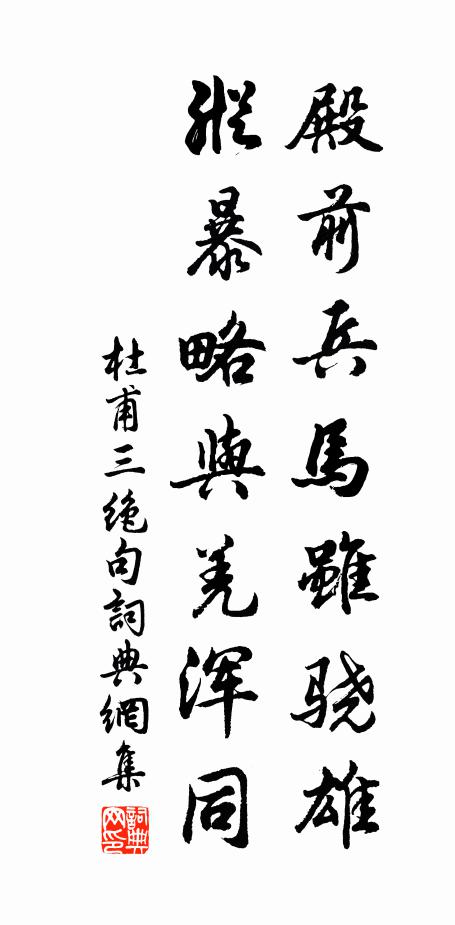 殿前兵馬雖骁雄
縱暴略與羌浑同
杜甫三絶句詞典網集
詞典网印